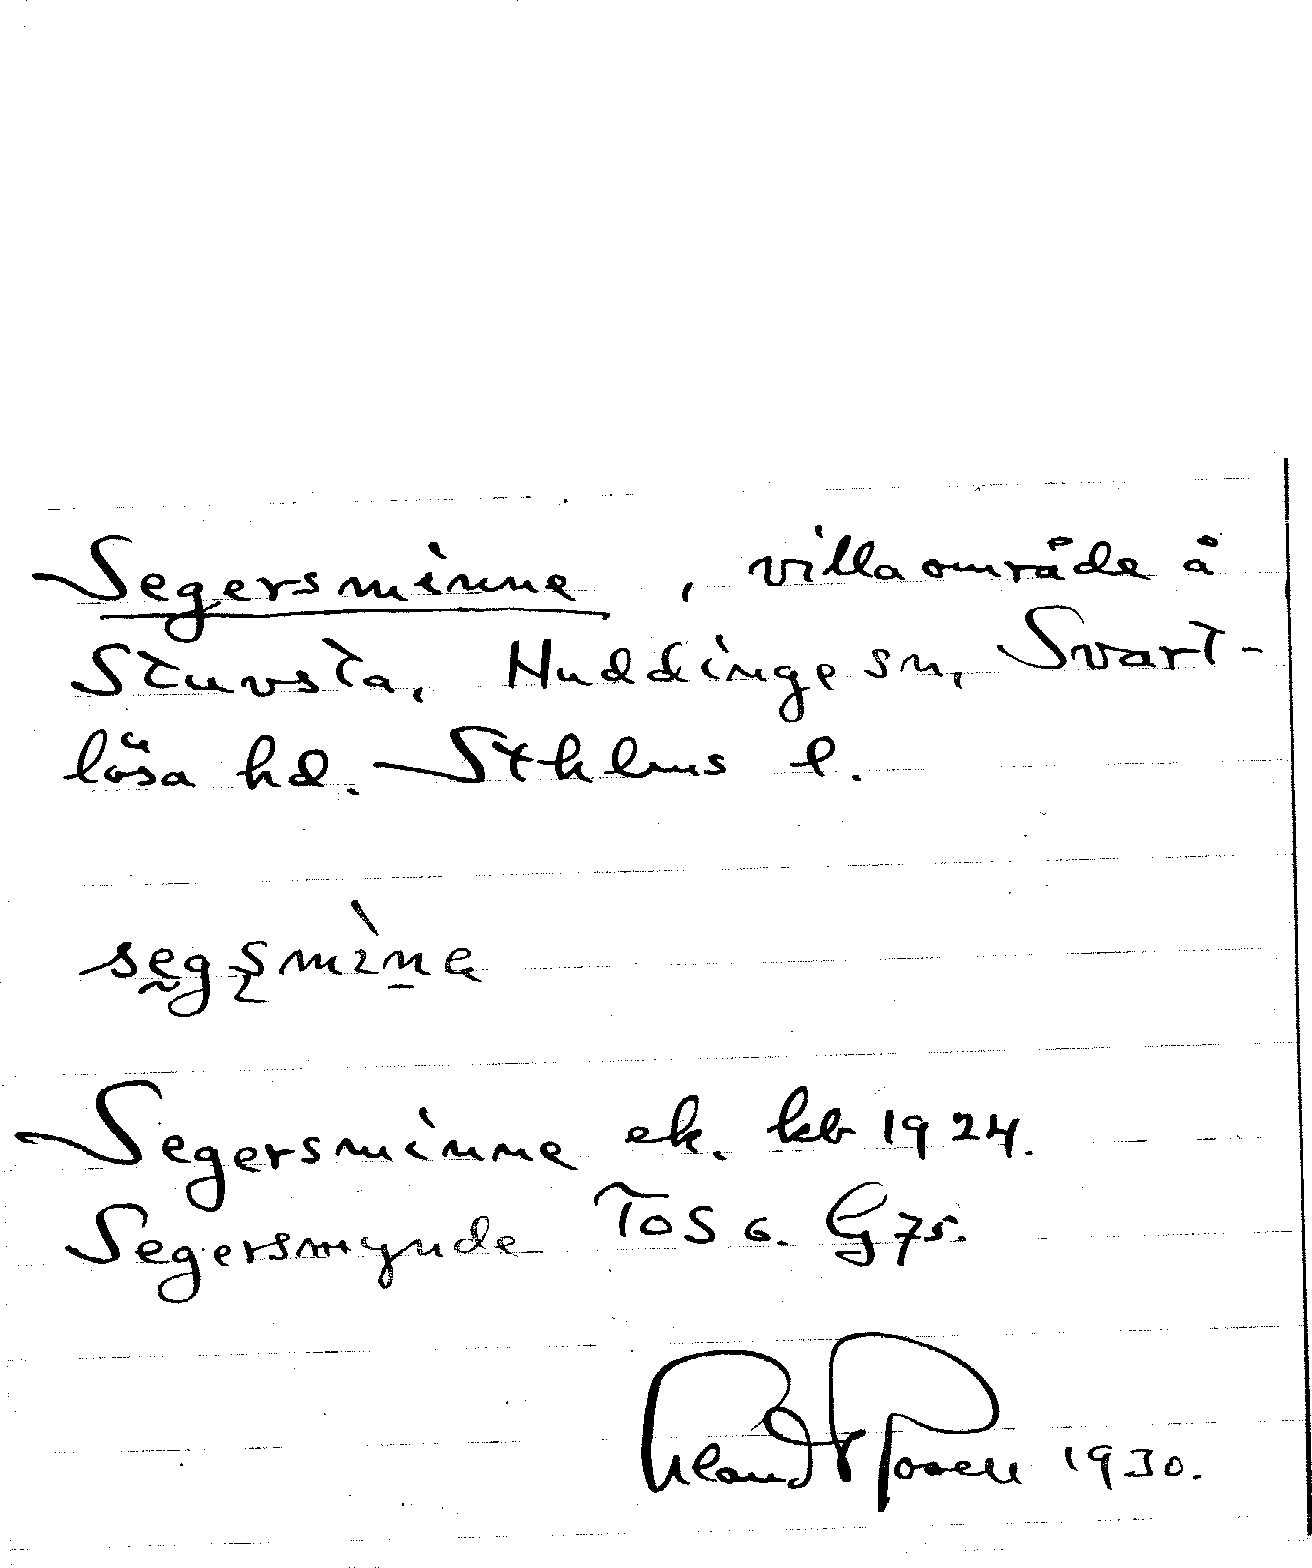 Segersminne, villaområde å
Stuvsta, Huddinge sn, Svart-
lösa hd. Sthlms l.
segʂmìne
Segersminne ek. kb 1924.
Segersmynde TOS 6. G 75.
1930.